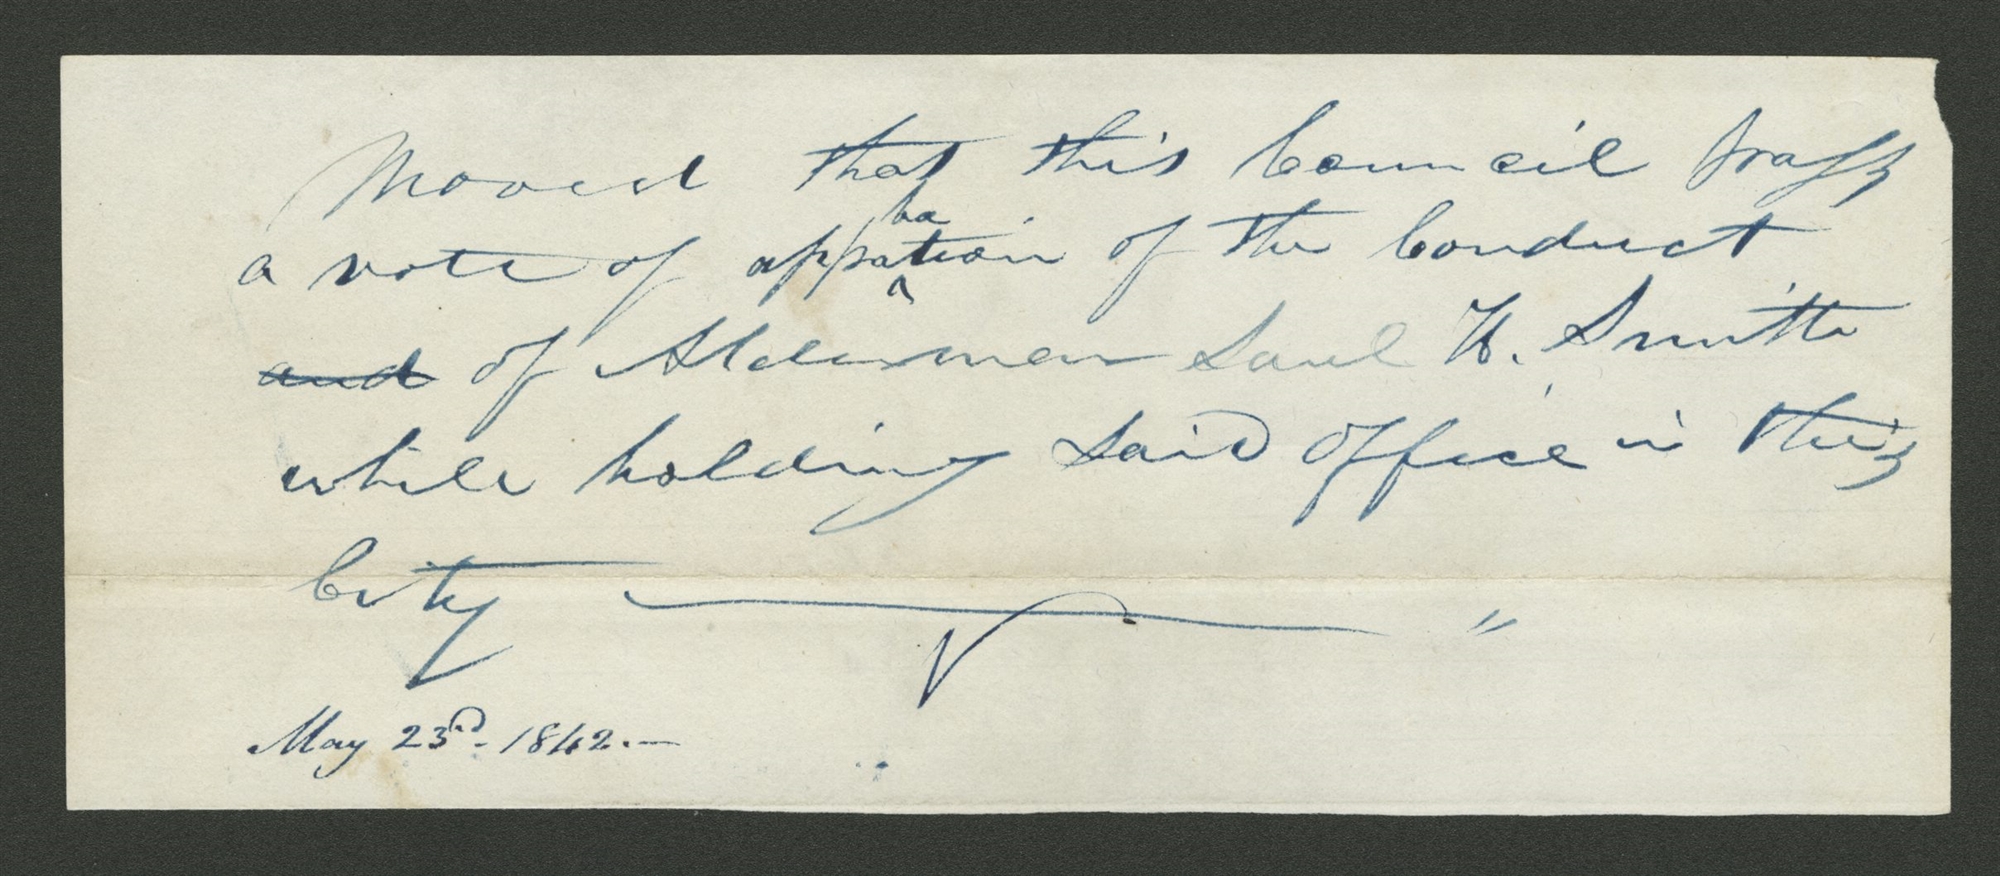 Moved that this Council pass
a vote of apprabation of the Conduct
and of Alderman Saml H. Smith
while holding said office in this
City ———— "
May 23rd. 1842.—